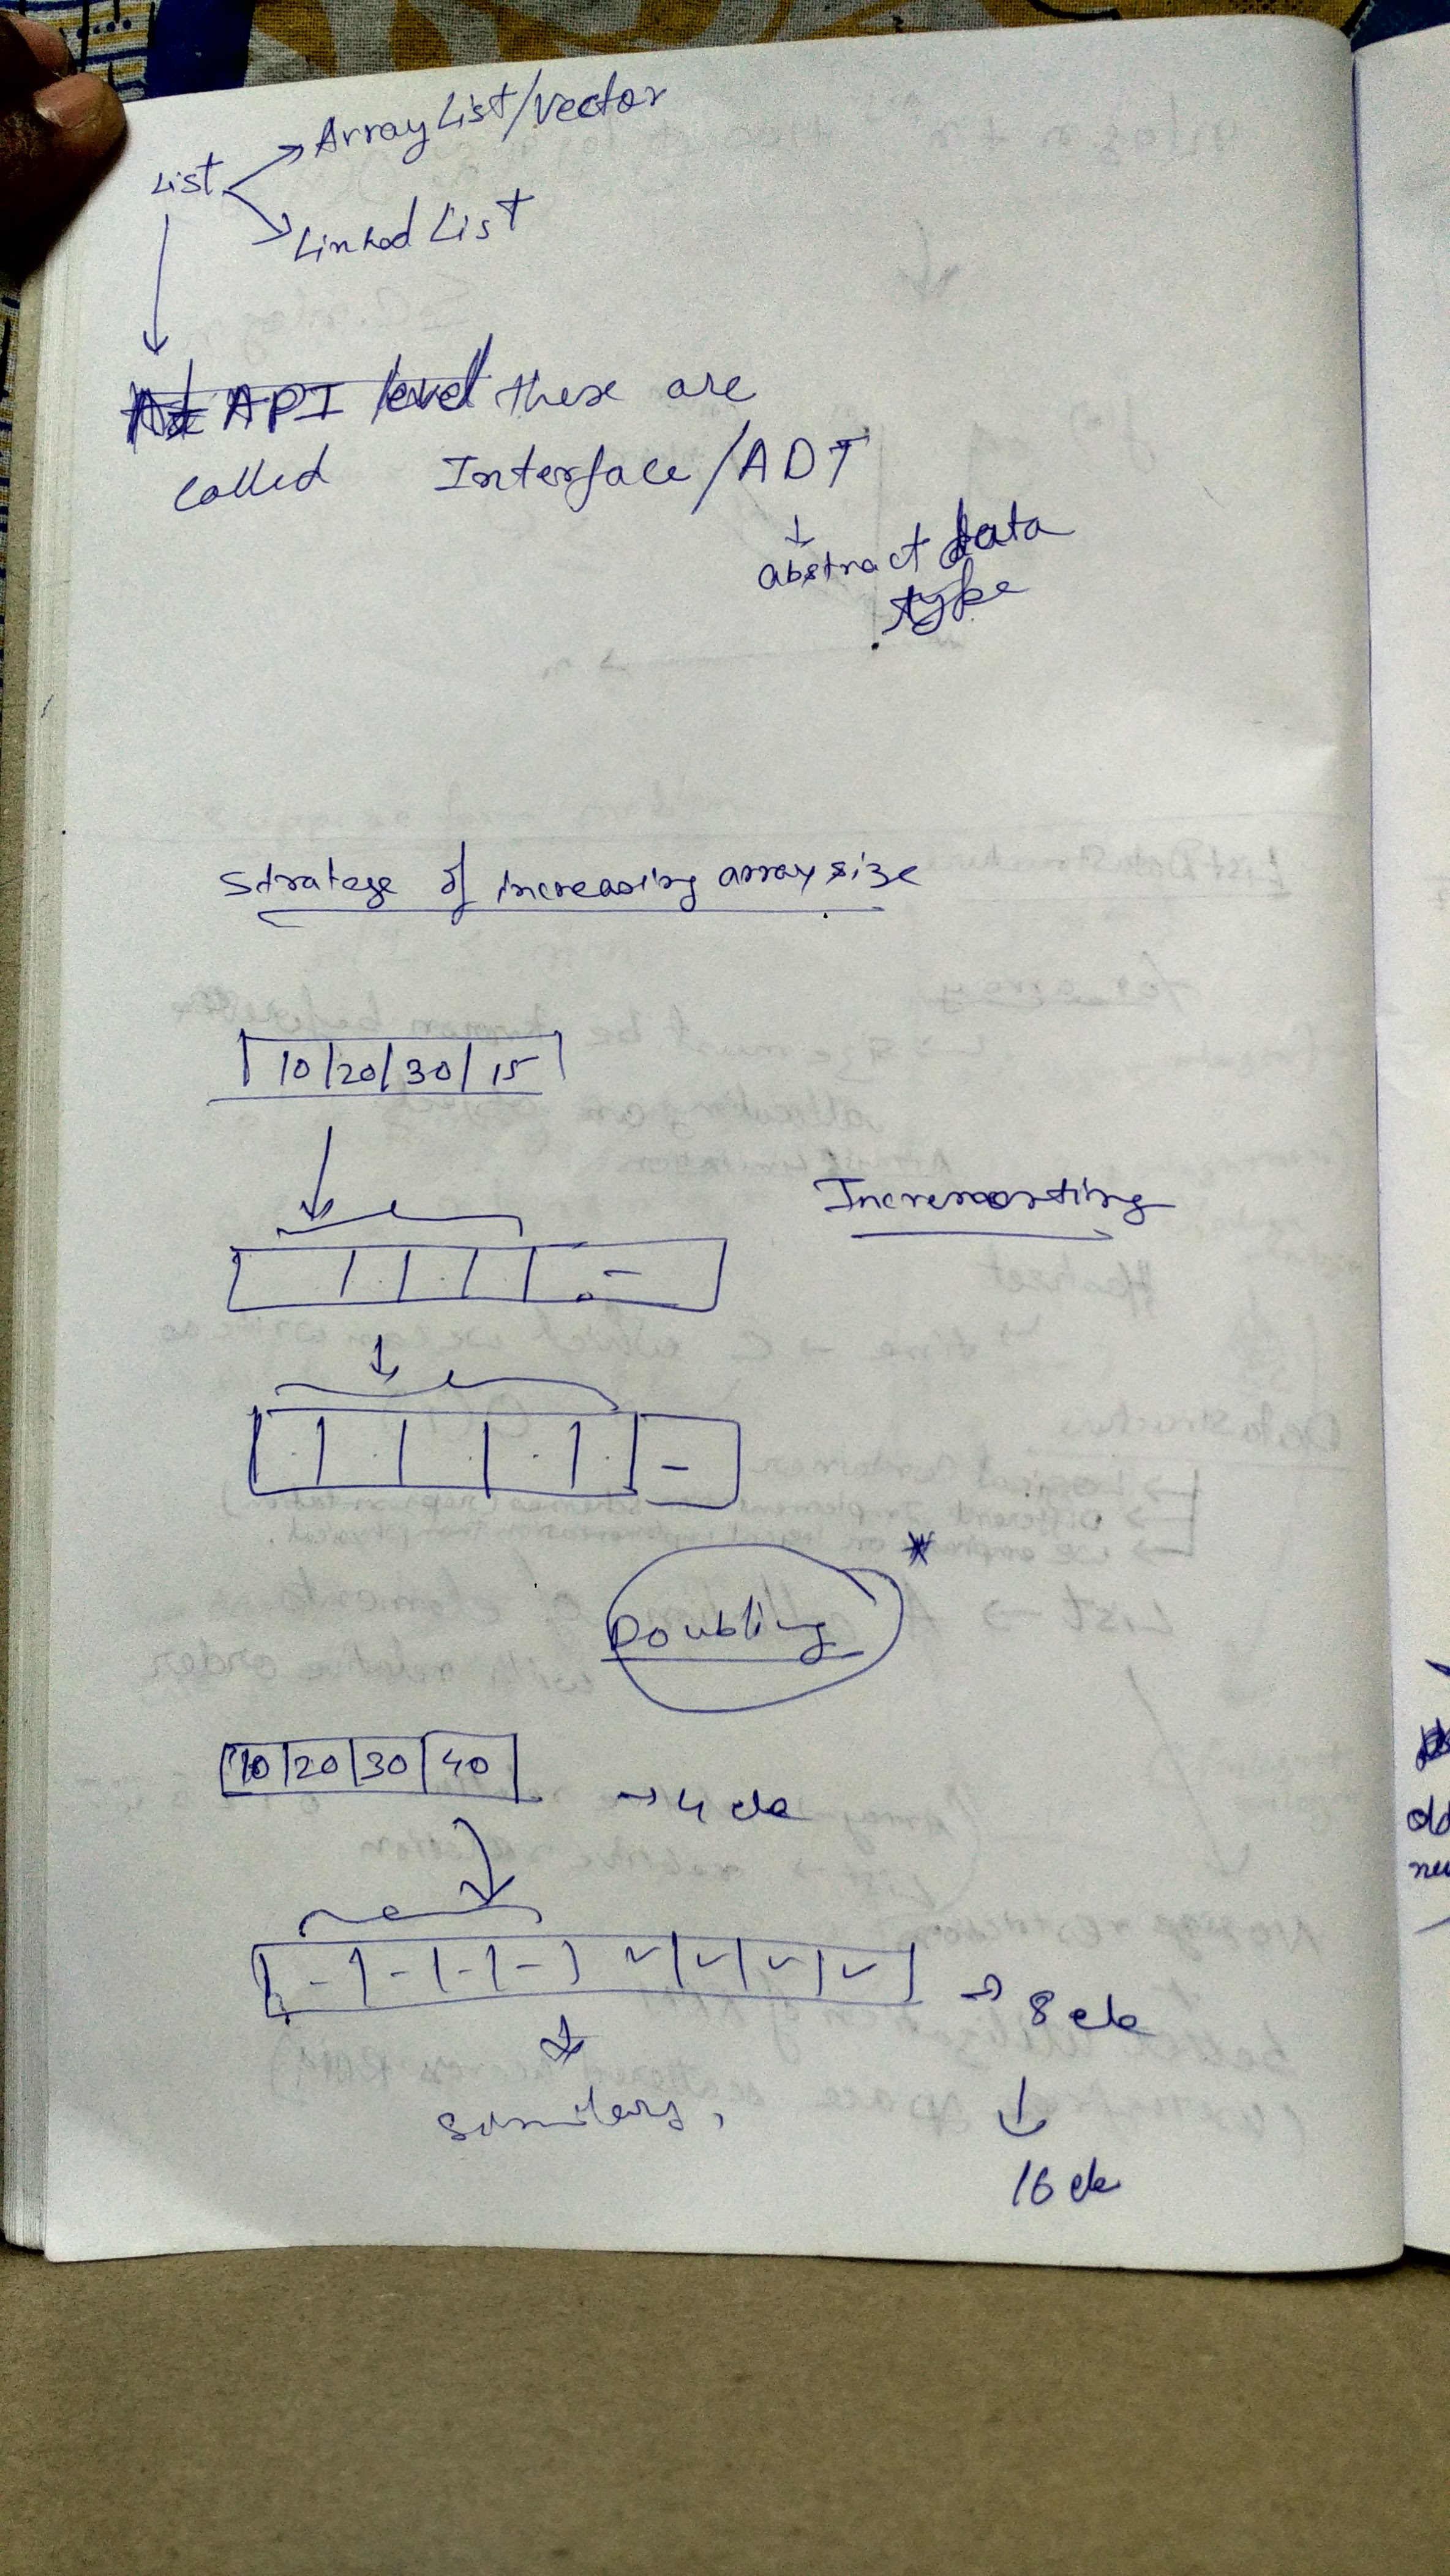 List
ArrayList/Vector
Linked List
At API level these are
called Interface/ADT
abstract data
type
Stratege of increasing array size
10 20 30 15
Incrementing
Doubling
*
10 20 30 40
→ 4 ele
→ 8 ele
16 ele